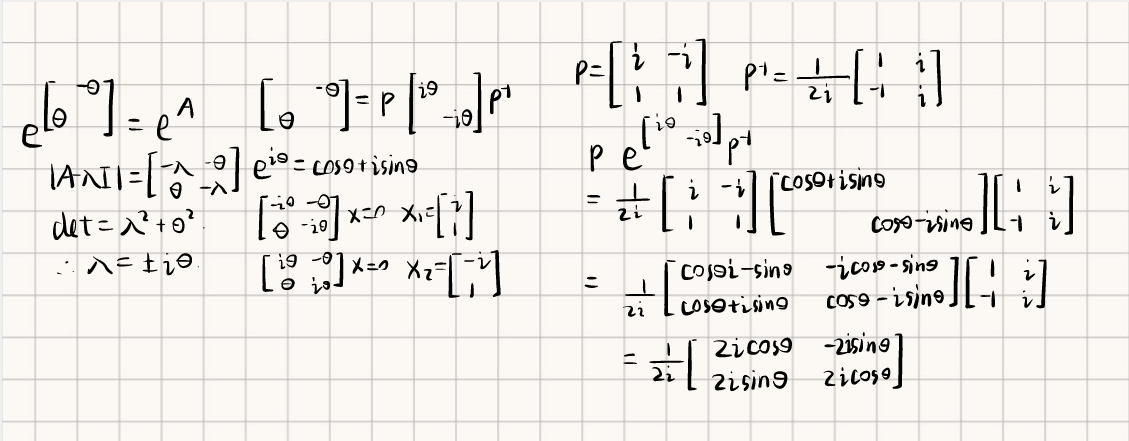 e^{\begin{bmatrix} & -θ \\ θ & \end{bmatrix}} = e^A
|A-λI| = \begin{bmatrix} -λ & -θ \\ θ & -λ \end{bmatrix}
det = λ² + θ².
∴ λ = ±iθ.
\begin{bmatrix} & -θ \\ θ & \end{bmatrix} = P \begin{bmatrix} iθ & \\ & -iθ \end{bmatrix} P^{-1}
e^{iθ} = cosθ + isinθ
\begin{bmatrix} -iθ & -θ \\ θ & -iθ \end{bmatrix} x=0 x₁ = \begin{bmatrix} i \\ 1 \end{bmatrix}
\begin{bmatrix} iθ & -θ \\ θ & iθ \end{bmatrix} x=0 x₂ = \begin{bmatrix} -i \\ 1 \end{bmatrix}
P = \begin{bmatrix} i & -i \\ 1 & 1 \end{bmatrix} P^{-1} = \frac{1}{2i} \begin{bmatrix} 1 & i \\ -1 & i \end{bmatrix}
P e^{\begin{bmatrix} iθ & \\ & -iθ \end{bmatrix}} P^{-1}
= \frac{1}{2i} \begin{bmatrix} i & -i \\ 1 & 1 \end{bmatrix} \begin{bmatrix} cosθ+isinθ & \\ & cosθ-isinθ \end{bmatrix} \begin{bmatrix} 1 & i \\ -1 & i \end{bmatrix}
= \frac{1}{2i} \begin{bmatrix} cosθi-sinθ & -icosθ-sinθ \\ cosθ+isinθ & cosθ-isinθ \end{bmatrix} \begin{bmatrix} 1 & i \\ -1 & i \end{bmatrix}
= \frac{1}{2i} \begin{bmatrix} 2icosθ & -2isinθ \\ 2isinθ & 2icosθ \end{bmatrix}